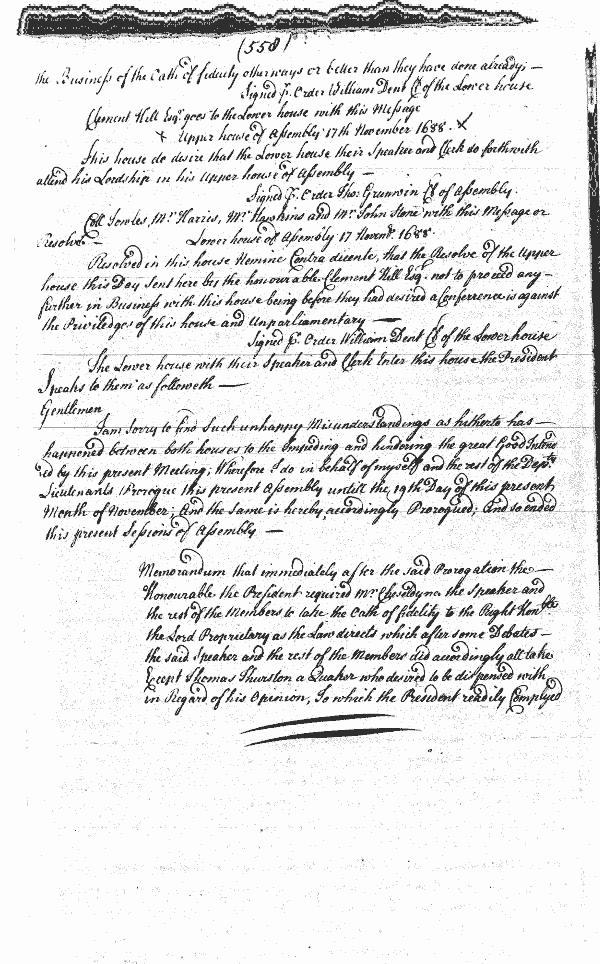 (558)
the Business of the Oath of fidelity otherways or better than they have done already; —
Signed p. Order William Dent Cl of the Lower house
Clement Hill Esqr. goes to the Lower house with this Message
x Upper house of Assembly 17th November 1688. x
This house do desire that the Lower house their Speaker and Clerk do forthwith
attend his Lordship in his Upper house of Assembly —
Signed p. Order Tho: Grunwin Cl of Assembly.
Coll Jowles, Mr. Harris, Mr. Hawkins and Mr. John Stone with this Message or
Resolve — Lower house of Assembly 17 Novemr. 1688.
Resolved in this house Nemine Contra dicente, that the Resolve of the Upper
house this Day sent here by the honourable Clement Hill Esqr. not to proceed any —
further in Business with this house being before they had desired a Conference is against
the Priviledges of this house and Unparliamentary —
Signed p. Order William Dent Cl of the Lower house
The Lower house with their Speaker and Clerk Enter this house the President
Speaks to them as followeth —
Gentlemen
I am sorry to find Such unhappy Misunderstandings as hitherto has —
happened between both houses to the Impeding and hindering the great Good Intend
ed by this present Meeting; Wherefore I do in behalf of myself and the rest of the Depty.
Lieutenants Proroque this present Assembly untill the 19th Day of this present
Month of November; And the same is hereby accordingly Prorogued; And so ended
this present Sessions of Assembly —
Memorandum that immediately after the said Prorogation the —
Honourable the President required Mr. Cheseldyne the Speaker and
the rest of the Members to take the Oath of fidelity to the Right Honble
the Lord Proprietary as the Law directs which after some Debates —
the said Speaker and the rest of the Members did accordingly all take
Except Thomas Thurston a Quaker who desired to be dispensed with
in Regard of his Opinion, To which the President readily Complyed